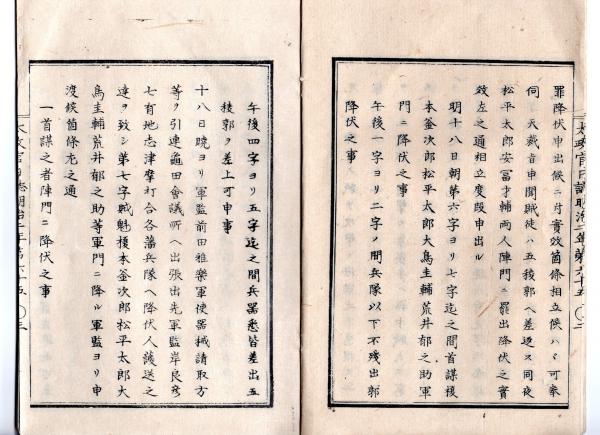 罪降伏申出候ニ付實效箇條相立候ハヽ可奉
伺 天裁旨申聞賊徒ハ五稜郭ヘ差返ス同夜
松平太郎安冨才輔兩人陣門ニ罷出降伏之實
效左之通相立度段申出ル
明十八日朝第六字ヨリ七字迄之間首謀榎
本釜次郎松平太郎大鳥圭輔荒井郁之助軍
門ニ降伏之事
午後一字ヨリ二字ノ間兵隊以下不殘出郭
降伏之事
太政官日誌明治二年第六十五 二
午後四字ヨリ五字迄之間兵器悉皆差出五
稜郭ヲ差上可申事
十八日曉ヨリ軍監前田雅樂軍使器械請取方
等ヲ引連龜田會議所ヘ出張出先軍監岸良彦
七有地志津摩打合各藩兵隊ヘ降伏人護送之
達ヲ致シ第七字賊魁榎本釜次郎松平太郎大
鳥圭輔荒井郁之助等軍門ニ降ル軍監ヨリ申
渡候箇條左之通
一首謀之者陣門ニ降伏之事
太政官日誌明治二年第六十五 三